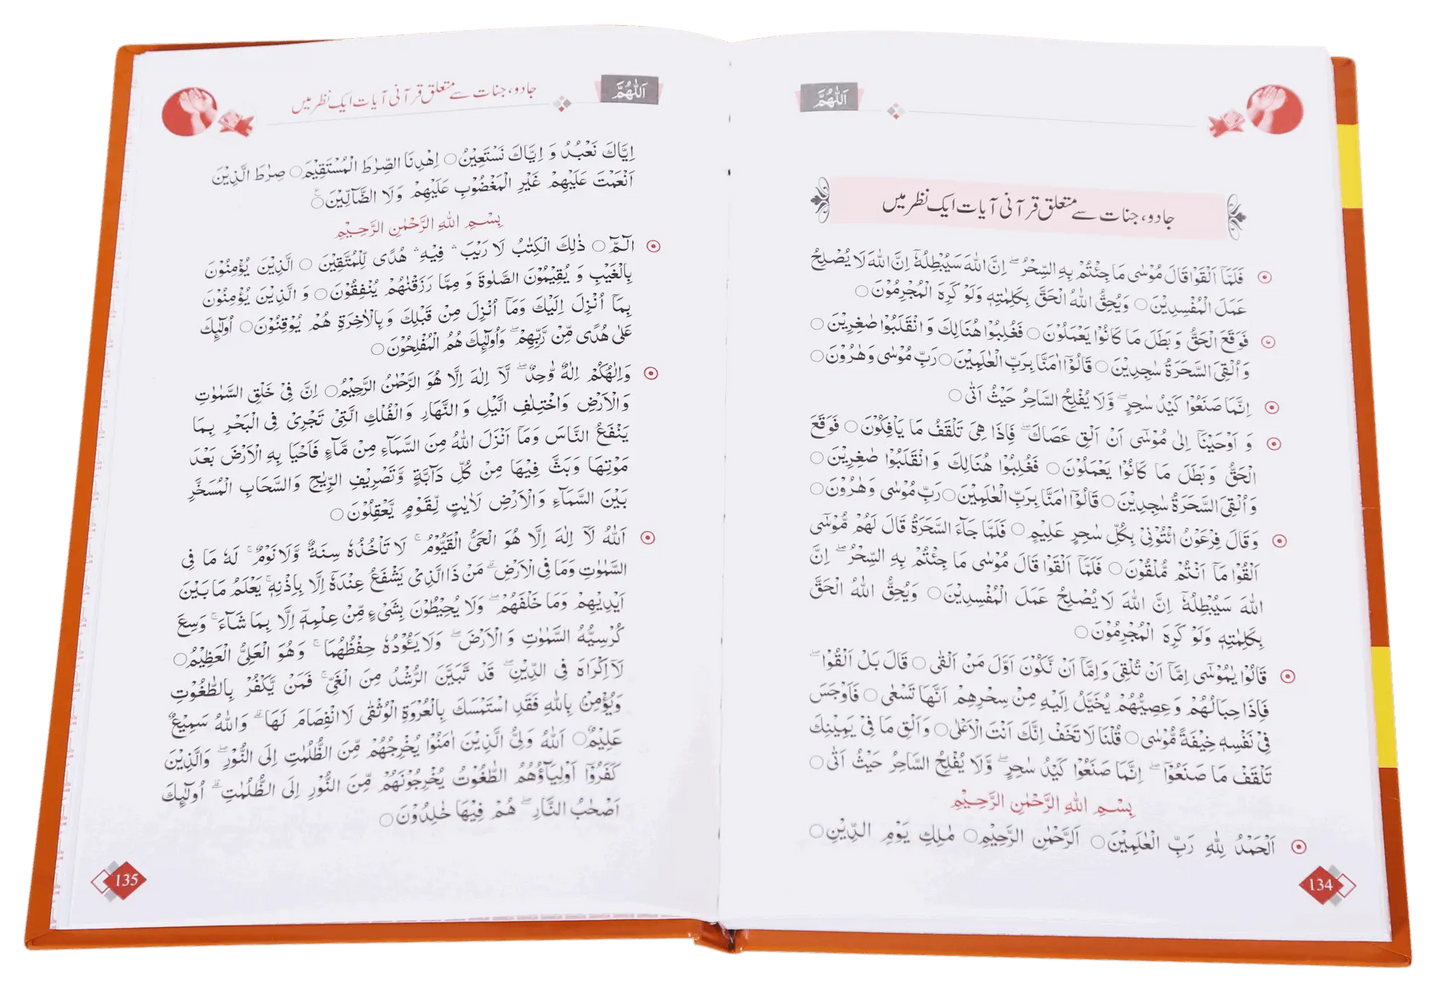 اَللّٰهُمَّ
جادو، جنات سے متعلق قرآنی آیات ایک نظر میں
فَلَمَّآ اَلْقَوْا قَالَ مُوْسٰى مَا جِئْتُمْ بِهِ السِّحْرُ ؕ اِنَّ اللّٰهَ سَيُبْطِلُهٗ ؕ اِنَّ اللّٰهَ لَا يُصْلِحُ
عَمَلَ الْمُفْسِدِيْنَ○ وَيُحِقُّ اللّٰهُ الْحَقَّ بِكَلِمٰتِهٖ وَلَوْ كَرِهَ الْمُجْرِمُوْنَ○
فَوَقَعَ الْحَقُّ وَبَطَلَ مَا كَانُوْا يَعْمَلُوْنَ○ فَغُلِبُوْا هُنَالِكَ وَانْقَلَبُوْا صٰغِرِيْنَ○
وَاُلْقِيَ السَّحَرَةُ سٰجِدِيْنَ○ قَالُوْٓا اٰمَنَّا بِرَبِّ الْعٰلَمِيْنَ○ رَبِّ مُوْسٰى وَهٰرُوْنَ○
اِنَّمَا صَنَعُوْا كَيْدُ سٰحِرٍ ؕ وَّلَا يُفْلِحُ السَّاحِرُ حَيْثُ اَتٰى○
وَ اَوْحَيْنَآ اِلٰى مُوْسٰٓى اَنْ اَلْقِ عَصَاكَ ۚ فَاِذَا هِيَ تَلْقَفُ مَا يَاْفِكُوْنَ○ فَوَقَعَ
الْحَقُّ وَبَطَلَ مَا كَانُوْا يَعْمَلُوْنَ○ فَغُلِبُوْا هُنَالِكَ وَانْقَلَبُوْا صٰغِرِيْنَ○
وَاُلْقِيَ السَّحَرَةُ سٰجِدِيْنَ○ قَالُوْٓا اٰمَنَّا بِرَبِّ الْعٰلَمِيْنَ○ رَبِّ مُوْسٰى وَهٰرُوْنَ○
وَقَالَ فِرْعَوْنُ ائْتُوْنِيْ بِكُلِّ سٰحِرٍ عَلِيْمٍ○ فَلَمَّا جَآءَ السَّحَرَةُ قَالَ لَهُمْ مُّوْسٰٓى
اَلْقُوْا مَآ اَنْتُمْ مُّلْقُوْنَ○ فَلَمَّآ اَلْقَوْا قَالَ مُوْسٰى مَا جِئْتُمْ بِهِ السِّحْرُ ؕ اِنَّ
اللّٰهَ سَيُبْطِلُهٗ ؕ اِنَّ اللّٰهَ لَا يُصْلِحُ عَمَلَ الْمُفْسِدِيْنَ○ وَيُحِقُّ اللّٰهُ الْحَقَّ
بِكَلِمٰتِهٖ وَلَوْ كَرِهَ الْمُجْرِمُوْنَ○
قَالُوْا يٰمُوْسٰٓى اِمَّآ اَنْ تُلْقِيَ وَاِمَّآ اَنْ نَّكُوْنَ اَوَّلَ مَنْ اَلْقٰى○ قَالَ بَلْ اَلْقُوْا ۚ
فَاِذَا حِبَالُهُمْ وَعِصِيُّهُمْ يُخَيَّلُ اِلَيْهِ مِنْ سِحْرِهِمْ اَنَّهَا تَسْعٰى○ فَاَوْجَسَ
فِيْ نَفْسِهٖ خِيْفَةً مُّوْسٰى○ قُلْنَا لَا تَخَفْ اِنَّكَ اَنْتَ الْاَعْلٰى○ وَاَلْقِ مَا فِيْ يَمِيْنِكَ
تَلْقَفْ مَا صَنَعُوْا ؕ اِنَّمَا صَنَعُوْا كَيْدُ سٰحِرٍ ؕ وَّلَا يُفْلِحُ السَّاحِرُ حَيْثُ اَتٰى○
بِسْمِ اللّٰهِ الرَّحْمٰنِ الرَّحِيْمِ
اَلْحَمْدُ لِلّٰهِ رَبِّ الْعٰلَمِيْنَ○ الرَّحْمٰنِ الرَّحِيْمِ○ مٰلِكِ يَوْمِ الدِّيْنِ○
134
اَللّٰهُمَّ
جادو، جنات سے متعلق قرآنی آیات ایک نظر میں
اِيَّاكَ نَعْبُدُ وَ اِيَّاكَ نَسْتَعِيْنُ○ اِهْدِنَا الصِّرٰطَ الْمُسْتَقِيْمَ○ صِرٰطَ الَّذِيْنَ
اَنْعَمْتَ عَلَيْهِمْ غَيْرِ الْمَغْضُوْبِ عَلَيْهِمْ وَلَا الضَّآلِّيْنَ○
بِسْمِ اللّٰهِ الرَّحْمٰنِ الرَّحِيْمِ
الٓمّٓ○ ذٰلِكَ الْكِتٰبُ لَا رَيْبَ ۛ فِيْهِ ۛ هُدًى لِّلْمُتَّقِيْنَ○ الَّذِيْنَ يُؤْمِنُوْنَ
بِالْغَيْبِ وَ يُقِيْمُوْنَ الصَّلٰوةَ وَ مِمَّا رَزَقْنٰهُمْ يُنْفِقُوْنَ○ وَ الَّذِيْنَ يُؤْمِنُوْنَ
بِمَآ اُنْزِلَ اِلَيْكَ وَمَآ اُنْزِلَ مِنْ قَبْلِكَ وَبِالْاٰخِرَةِ هُمْ يُوْقِنُوْنَ○ اُولٰٓئِكَ
عَلٰى هُدًى مِّنْ رَّبِّهِمْ ۗ وَاُولٰٓئِكَ هُمُ الْمُفْلِحُوْنَ○
وَاِلٰهُكُمْ اِلٰهٌ وَّاحِدٌ ۚ لَآ اِلٰهَ اِلَّا هُوَ الرَّحْمٰنُ الرَّحِيْمُ○ اِنَّ فِيْ خَلْقِ السَّمٰوٰتِ
وَالْاَرْضِ وَاخْتِلَافِ الَّيْلِ وَ النَّهَارِ وَالْفُلْكِ الَّتِيْ تَجْرِيْ فِي الْبَحْرِ بِمَا
يَنْفَعُ النَّاسَ وَمَآ اَنْزَلَ اللّٰهُ مِنَ السَّمَآءِ مِنْ مَّآءٍ فَاَحْيَا بِهِ الْاَرْضَ بَعْدَ
مَوْتِهَا وَبَثَّ فِيْهَا مِنْ كُلِّ دَآبَّةٍ وَّتَصْرِيْفِ الرِّيٰحِ وَالسَّحَابِ الْمُسَخَّرِ
بَيْنَ السَّمَآءِ وَالْاَرْضِ لَاٰيٰتٍ لِّقَوْمٍ يَّعْقِلُوْنَ○
اَللّٰهُ لَآ اِلٰهَ اِلَّا هُوَ الْحَيُّ الْقَيُّوْمُ ۚ لَا تَاْخُذُهٗ سِنَةٌ وَّلَا نَوْمٌ ؕ لَهٗ مَا فِي
السَّمٰوٰتِ وَمَا فِي الْاَرْضِ ؕ مَنْ ذَا الَّذِيْ يَشْفَعُ عِنْدَهٗٓ اِلَّا بِاِذْنِهٖ ؕ يَعْلَمُ مَا بَيْنَ
اَيْدِيْهِمْ وَمَا خَلْفَهُمْ ۚ وَلَا يُحِيْطُوْنَ بِشَيْءٍ مِّنْ عِلْمِهٖٓ اِلَّا بِمَا شَآءَ ۚ وَسِعَ
كُرْسِيُّهُ السَّمٰوٰتِ وَ الْاَرْضَ ۚ وَلَا يَـُٔوْدُهٗ حِفْظُهُمَا ۚ وَهُوَ الْعَلِيُّ الْعَظِيْمُ○
لَآ اِكْرَاهَ فِي الدِّيْنِ ۙ قَدْ تَّبَيَّنَ الرُّشْدُ مِنَ الْغَيِّ ۚ فَمَنْ يَّكْفُرْ بِالطَّاغُوْتِ
وَيُؤْمِنْۢ بِاللّٰهِ فَقَدِ اسْتَمْسَكَ بِالْعُرْوَةِ الْوُثْقٰى لَا انْفِصَامَ لَهَا ؕ وَاللّٰهُ سَمِيْعٌ
عَلِيْمٌ○ اَللّٰهُ وَلِيُّ الَّذِيْنَ اٰمَنُوْا يُخْرِجُهُمْ مِّنَ الظُّلُمٰتِ اِلَى النُّوْرِ ؕ وَالَّذِيْنَ
كَفَرُوْٓا اَوْلِيٰٓـُٔهُمُ الطَّاغُوْتُ يُخْرِجُوْنَهُمْ مِّنَ النُّوْرِ اِلَى الظُّلُمٰتِ ؕ اُولٰٓئِكَ
اَصْحٰبُ النَّارِ ۚ هُمْ فِيْهَا خٰلِدُوْنَ○
135